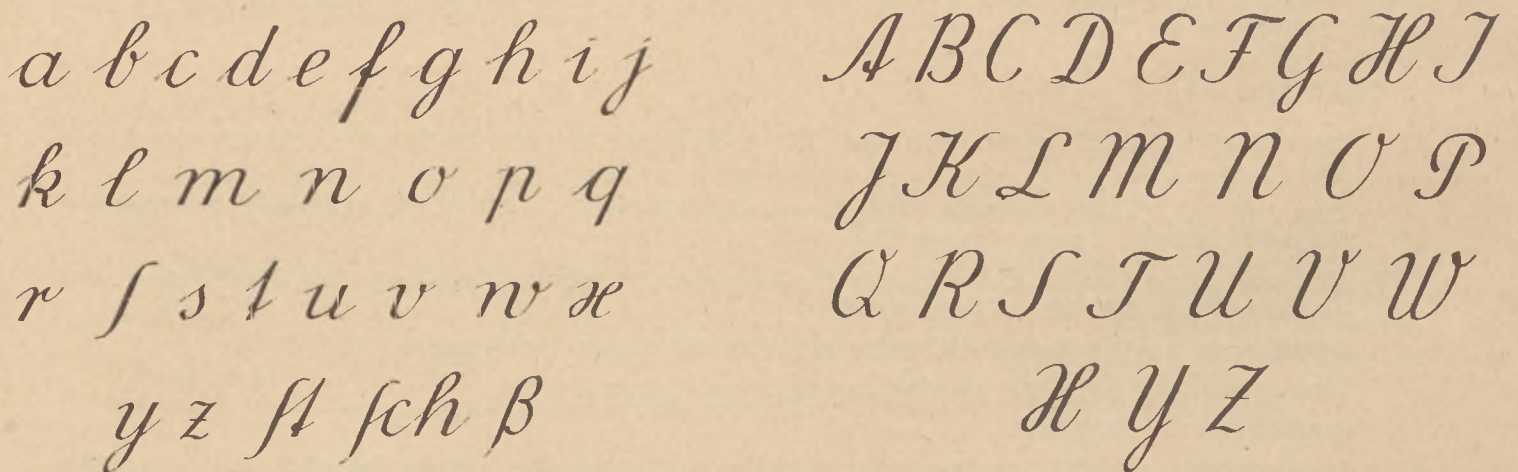 a b c d e f g h i j
k l m n o p q
r ſ s t u v w x
y z ſt ſch ß
A B C D E F G H I
J K L M N O P
Q R S T U V W
X Y Z